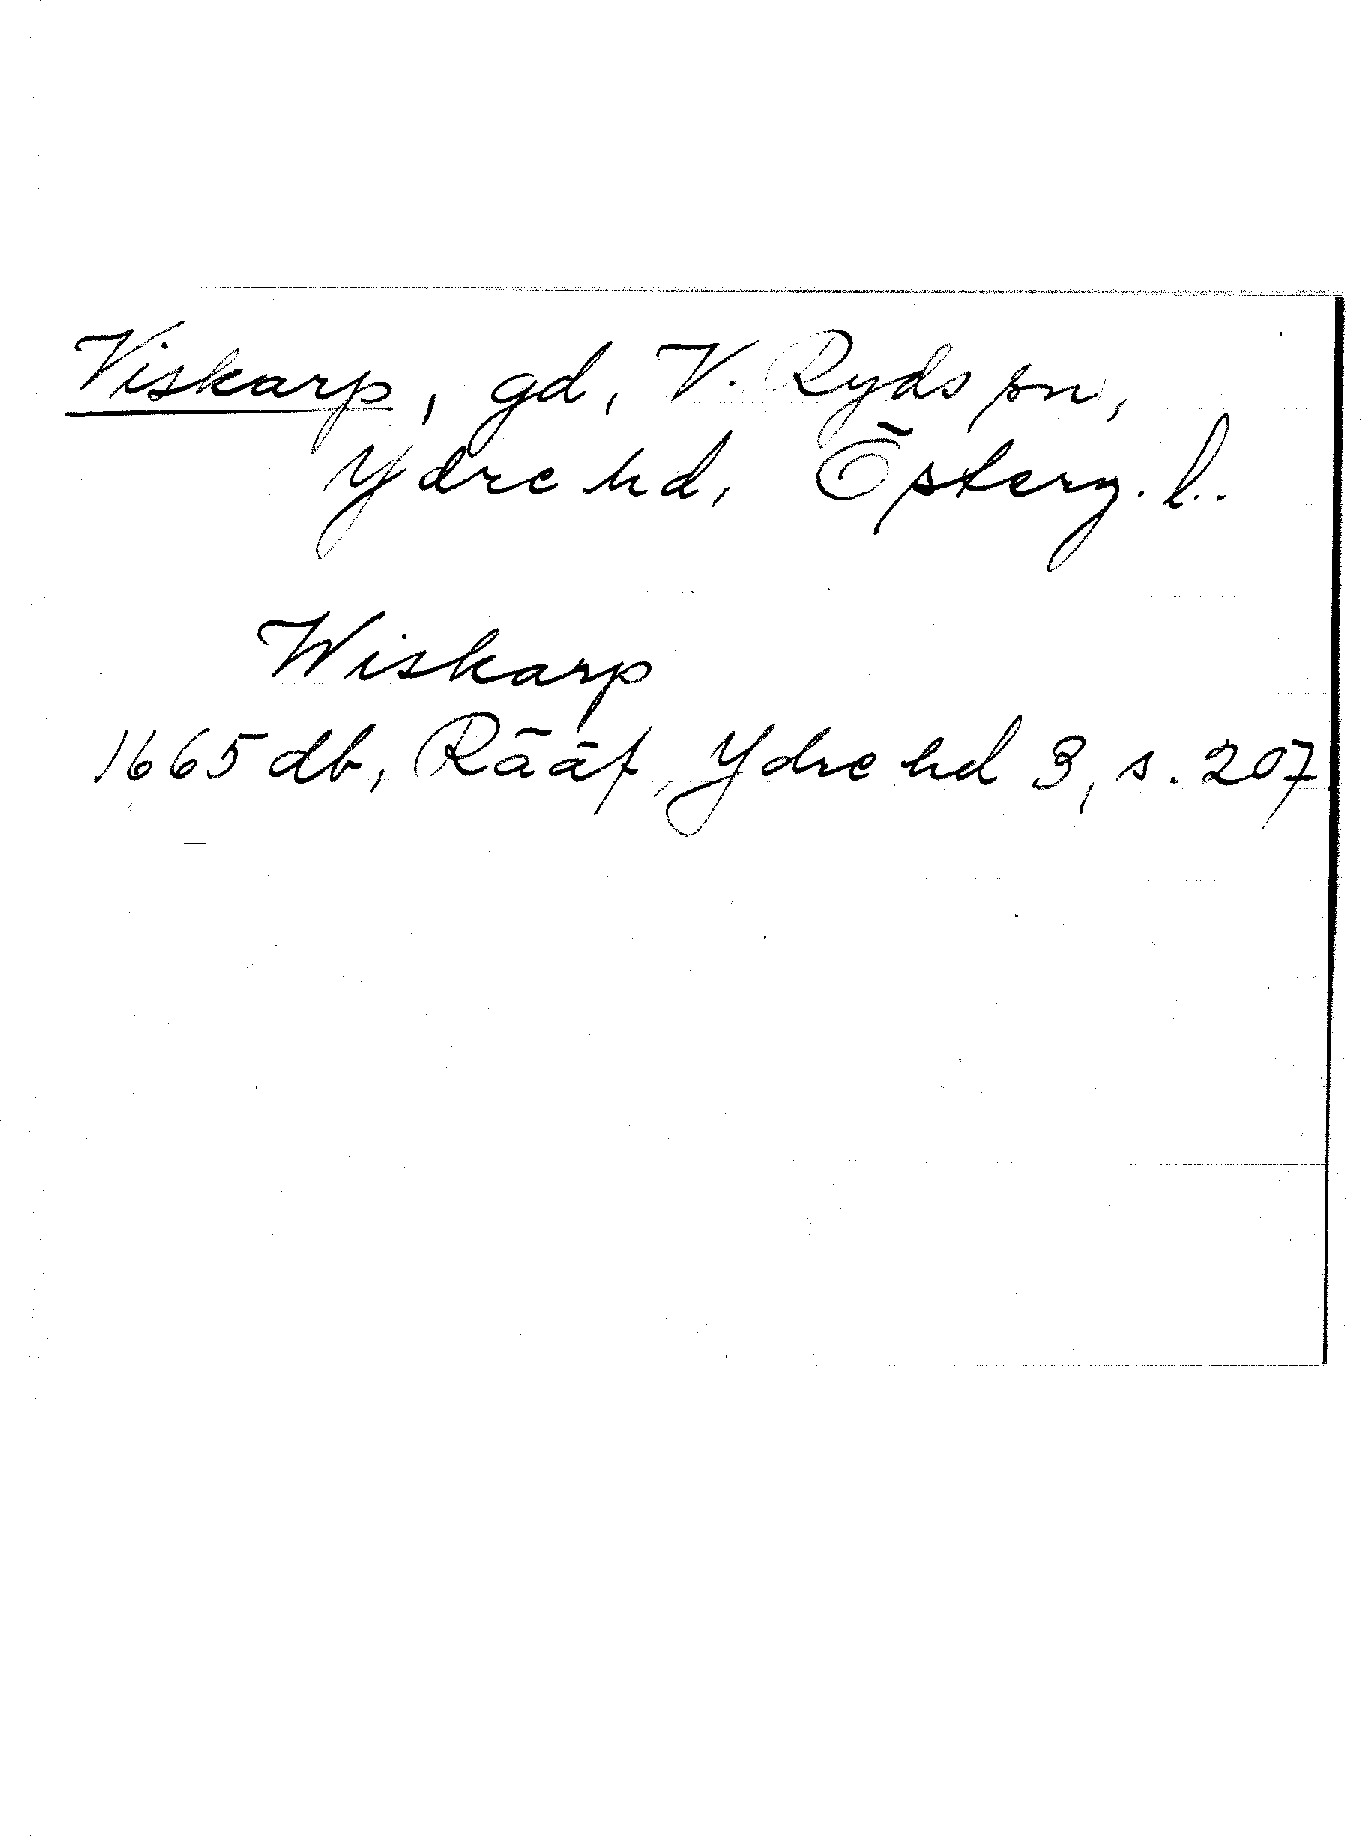 Viskarp, gd, V. Ryds sn,
Ydre hd, Österg. l.
Wiskarp
1665 db, Rääf, Ydre hd 3, s. 207